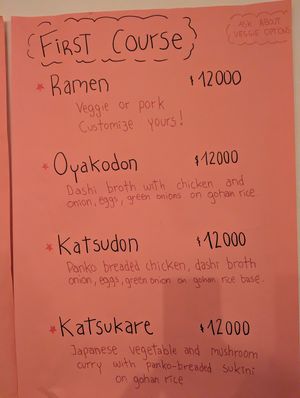 FIRST COURSE
ASK ABOUT
VEGGIE OPTIONS
Ramen $12000
Veggie or pork
Customize yours!
Oyakodon $12000
Dashi broth with chicken and
onion, eggs, green onions on gohan rice.
Katsudon $12000
Panko breaded chicken, dashi broth
onion, eggs, green onion on gohan rice base.
Katsukare $12000
Japanese vegetable and mushroom
curry with panko-breaded sukini
on gohan rice